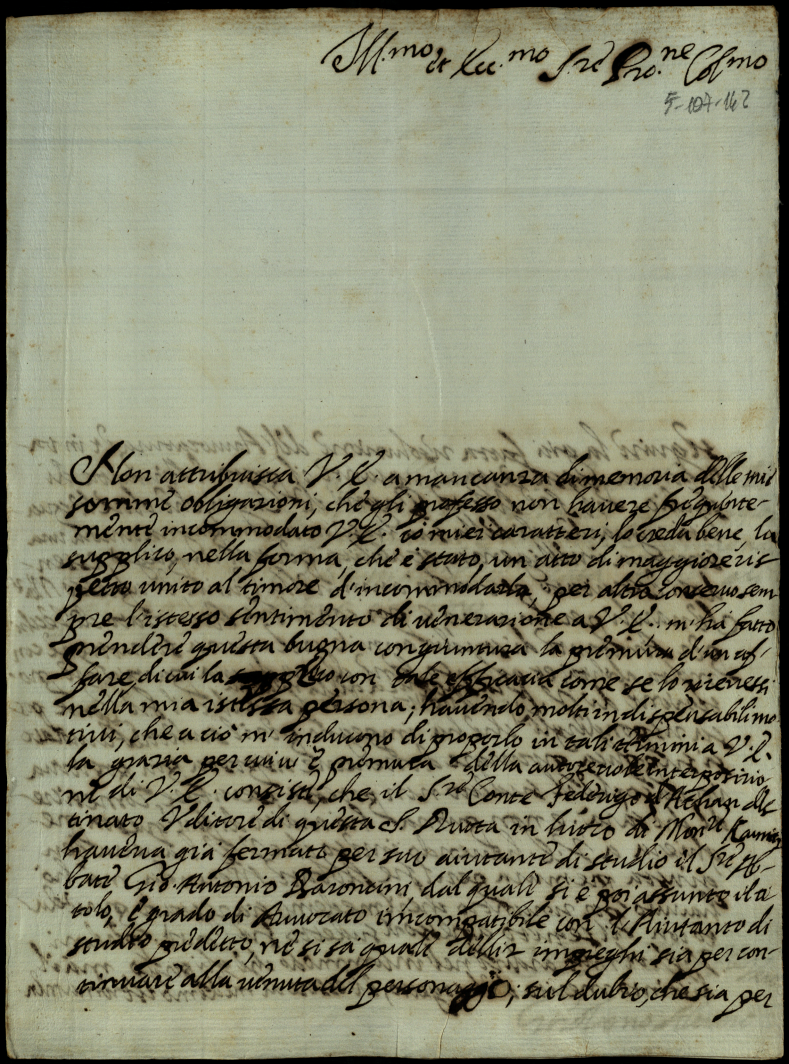 Ill.mo et Ecc.mo S.re Pro.ne Col.mo
5-107-142
Non attribuisca V. E. a mancanza di memoria delle mie
somme obligazioni, che gli professo non havere frequente-
mente incommodato V. E. co miei caratteri, lo creda bene, la
supplico, nella forma, che è stato, un atto di maggiore ris-
petto unito al timore d'incommodarla, per altro conservo sem
pre l'istesso sentimento di venerazione a V. E. m'ha fatto
prendere questa buona congiuntura la premura d'un af-
fare, di cui la supplico con tale efficacia come se lo ricevessi
nella mia istessa persona, havendo molti indispensabili mo
tivi, che a ciò m'inducono di proporlo in tali termini a V. E.
la grazia per cui v'è premura della autorevole interposizio-
ne di V. E. consiste, che, il S.re Conte Federigo d'Althan des-
tinato Uditore di questa S. Ruota in luoco di Mon.re
haveva già fermato per suo aiutante di studio il S.re Ab-
bate Gio. Antonio Baroncini dal quale si è poi assunto il ti
tolo, e grado di Avvocato incompatibile con l'Aiutanto di
studio predetto, ne si sa quale delli 2 impieghi sia per con-
tinuare alla venuta del personaggio; sul dubio, che sia per